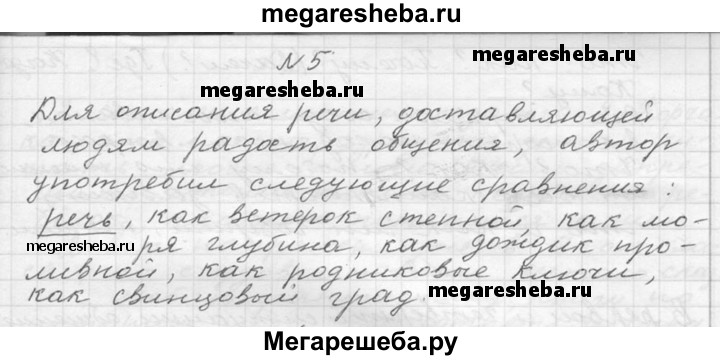 megaresheba.ru
N 5
megaresheba.ru
Для описания речи, доставляющей
людям радость общения, автор
употребил следующие сравнения:
речь, как ветерок степной, как мо-
megaresheba.ru
ря глубина, как дождик про-
ливной, как родниковые ключи,
как свинцовый град.
megaresheba.ru
Мегарешеба.ру